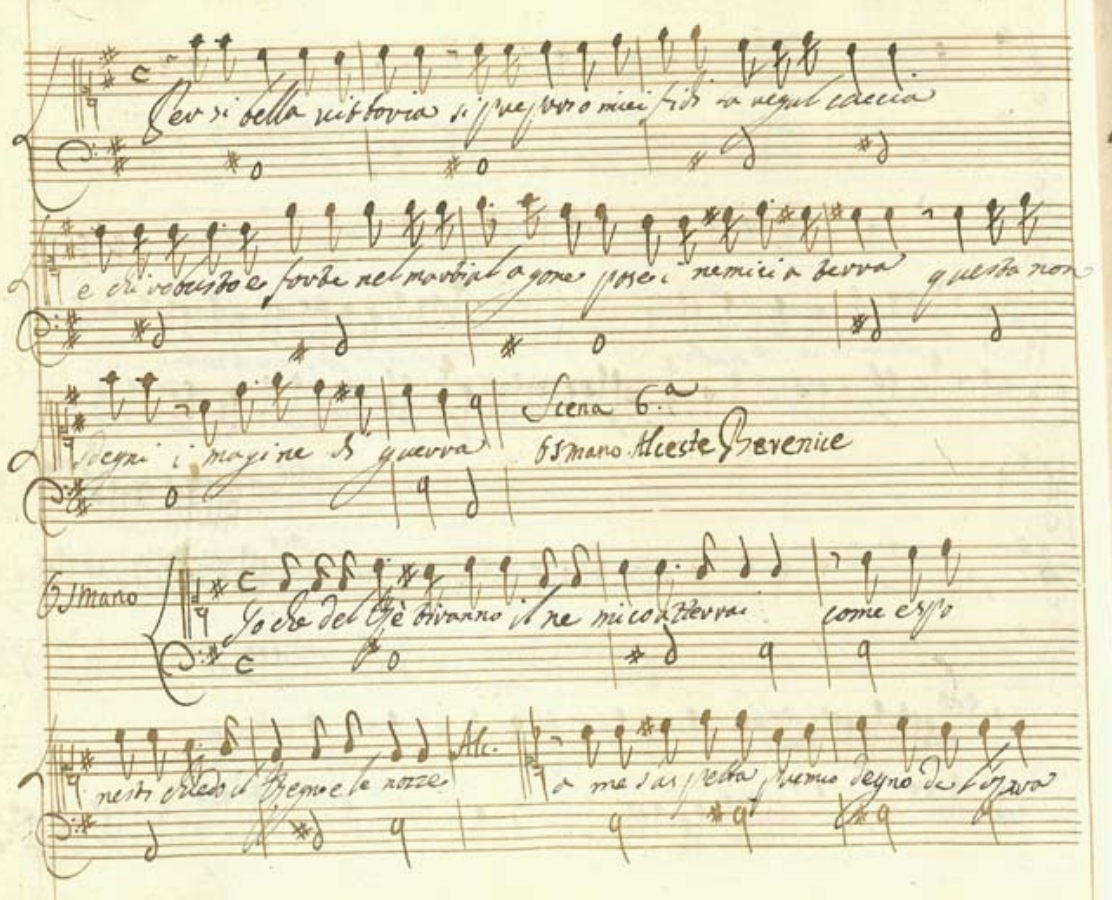 Per si bella vittoria si prepari o miei fidi la regal caccia
e chi robusto e forte nel martial agone pose i nemici a terra questa non
sdegni imagine di guerra Scena 6.a
Osmano Alceste Berenice
Osmano
Io che del Rè tiranno il nemico atterrai come espo
nesti chiedo il Regno e le nozze Alc. a me s'aspetta premio degno de l'opra